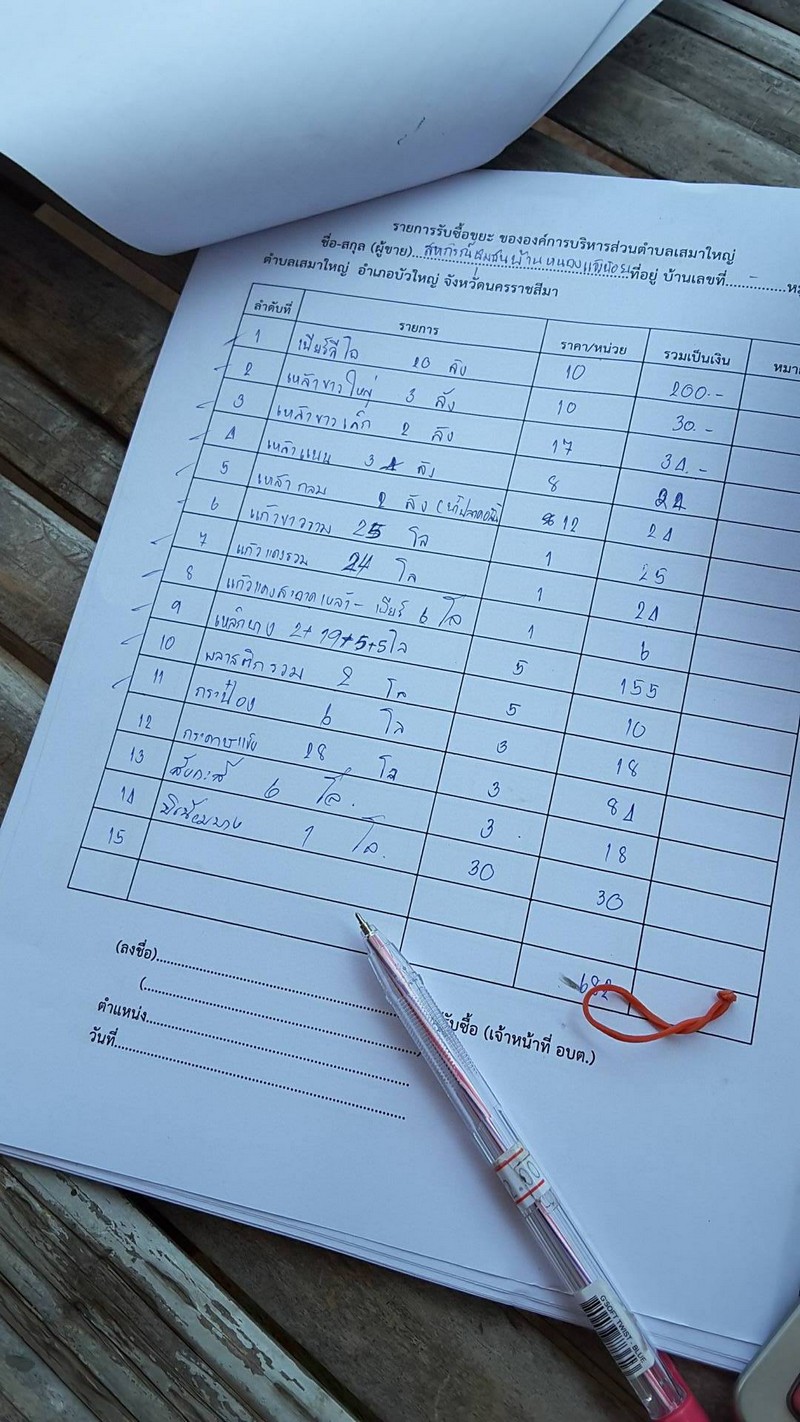 รายการรับซื้อขยะ ขององค์การบริหารส่วนตำบลเสมาใหญ่
ชื่อ-สกุล (ผู้ขาย) ที่อยู่ บ้านเลขที่ - ห
ตำบลเสมาใหญ่ อำเภอบัวใหญ่ จังหวัดนครราชสีมา
ลำดับที่ รายการ ราคา/หน่วย รวมเป็นเงิน หมา
1 เบียร์ลีโอ 20 ลัง 10 200.-
2 เหล้าขาวใหญ่ 3 ลัง 10 30.-
3 เหล้าขาวเล็ก 2 ลัง 17 34.-
4 เหล้าแบน 3 ลัง 8 24
5 เหล้ากลม 2 ลัง 12 24
6 แก้วขาวรวม 25 โล 1 25
7 แก้วแดงรวม 24 โล 1 24
8 แก้วแดงสะอาดเหล้า - เบียร์ 6 โล 1 6
9 เหล็กบาง 2+19+5+5 โล 5 155
10 พลาสติกรวม 2 โล 5 10
11 กระป๋อง 6 โล 3 18
12 กระดาษแข็ง 28 โล 3 84
13 สังกะสี 6 โล. 3 18
14 1 โล. 30 30
15
682
(ลงชื่อ)
(
รับซื้อ (เจ้าหน้าที่ อบต.)
ตำแหน่ง
วันที่
G'SOFT TWIST - BLUE